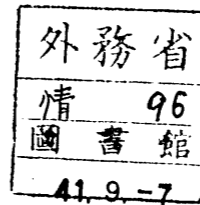 外務省
情 96
圖書館
41.9.-7